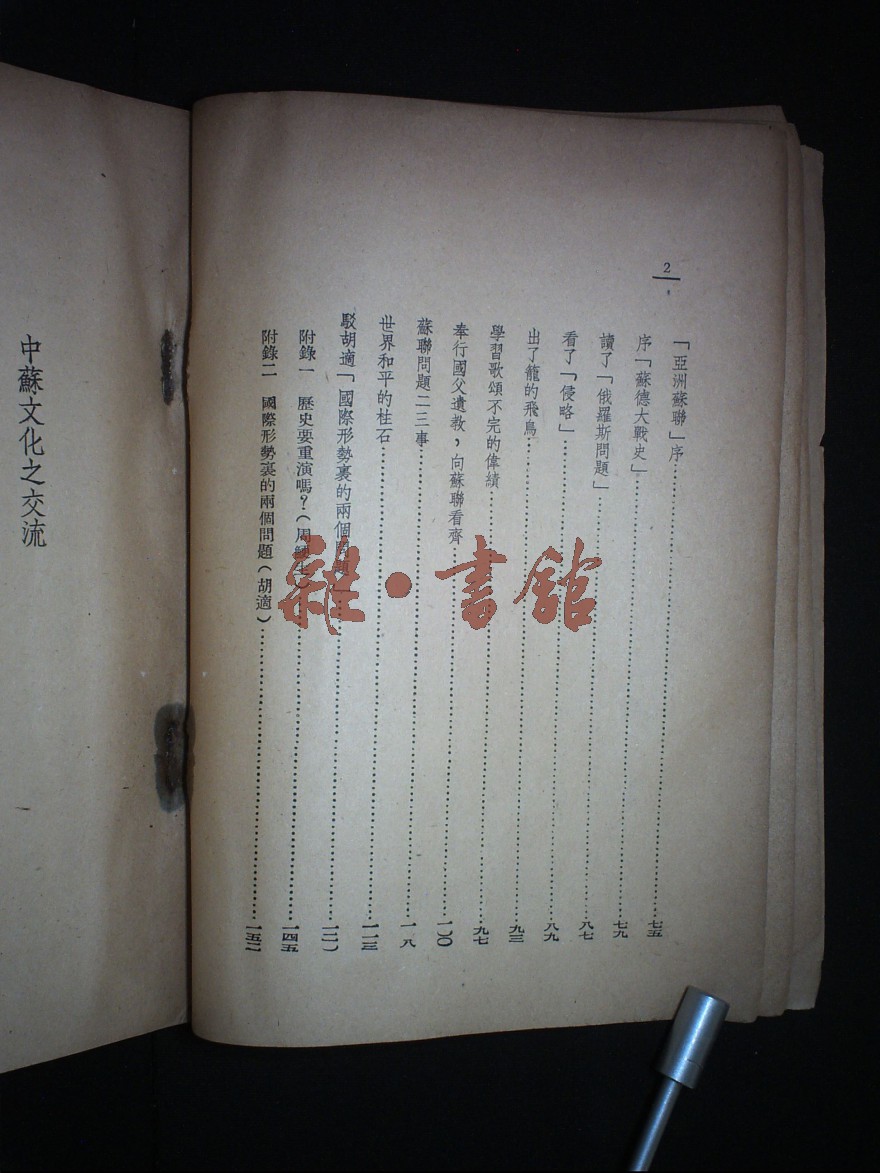 2
「亞洲蘇聯」序……七五
序「蘇德大戰史」……七九
讀了「俄羅斯問題」……八七
看了「侵略」……八九
出了籠的飛鳥……九三
學習歌頌不完的偉績……九七
奉行國父遺教，向蘇聯看齊……一〇〇
蘇聯問題二三事……
世界和平的柱石……一一三
駁胡適「國際形勢裏的兩個問題」……
附錄一 歷史要重演嗎？（周……一四五
附錄二 國際形勢裏的兩個問題（胡適）……一五二
中蘇文化之交流
雜·書館